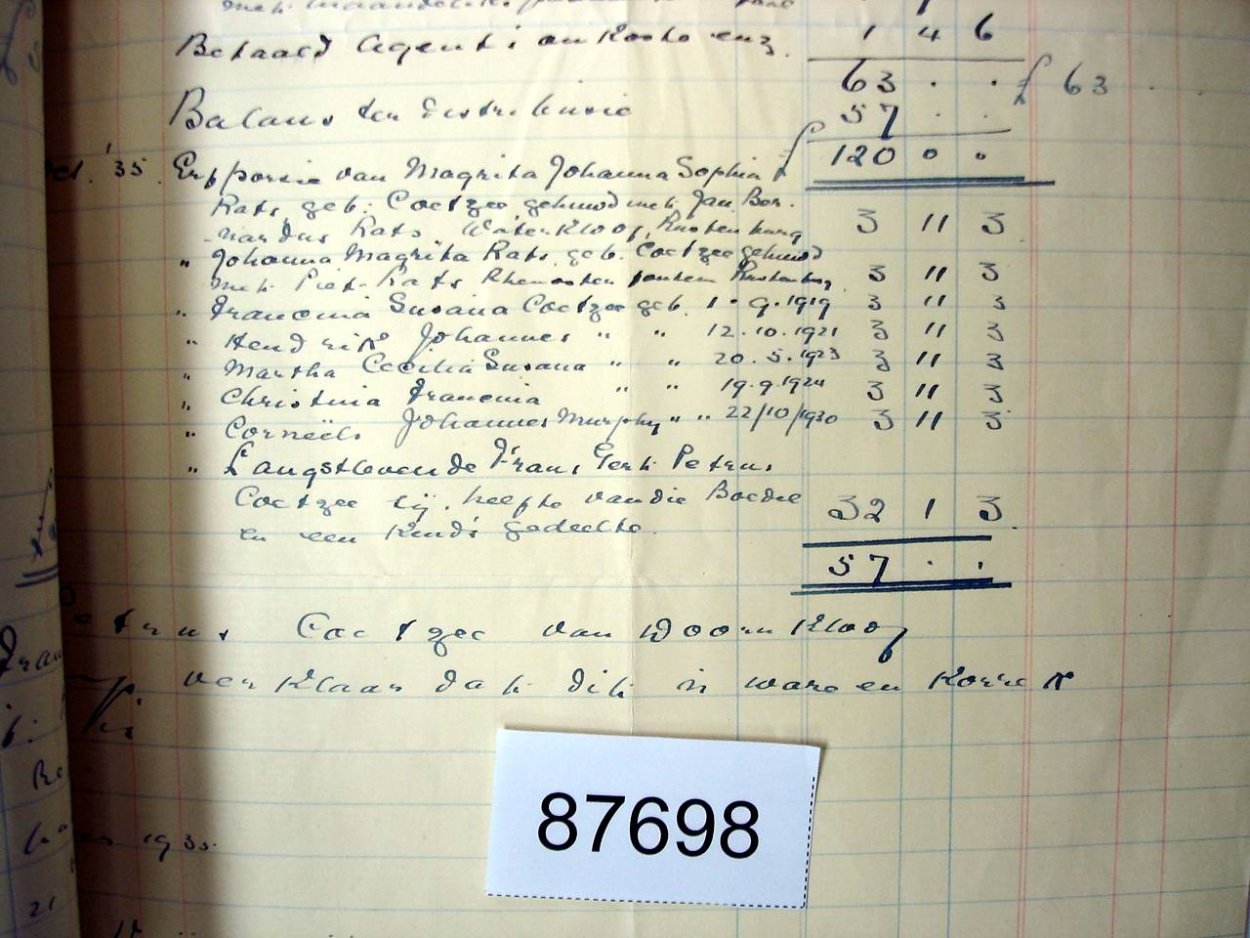 Betaald Agent's onkoste enz. 1 4 6
63 . . £ 63
Balans ter Distribusie 57 . .
£ 120 0 0
'35. Erfporsie van Magrita Johanna Sophia
Rats geb: Coetzee gehuwd met Jan Ber-
nardus Rats Waterkloof, Rustenburg 3 11 3
" Johanna Magrita Rats geb. Coetzee gehuwd
met Piet Rats Rhenosterfontein Rustenburg. 3 11 3
" Francina Susana Coetzee geb. 1.9.1919 3 11 3
" Hendrik Johannes " " 12.10.1921 3 11 3
" Martha Cecilia Susana " " 20.5.1923 3 11 3
" Christina Francina " " 19.9.1924 3 11 3
" Corneëls Johannes Murphy " " 22/10/1930 3 11 3
" Langstlevende Frans Gert Petrus
Coetzee tij. helfte van die Boedel
en een kinds gedeelte. 32 1 3
57 . .
Petrus Coetzee van Doornkloof
verklaar dat dit is ware en korrek
1935
21
87698